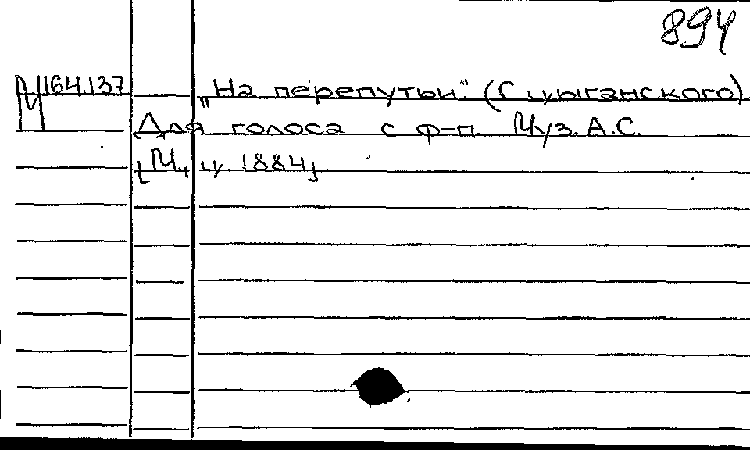 894
М 164.137 „На перепутьи" (С цыганского)
Для голоса с ф-п. Муз. А.С.
[М., ц. 1884]